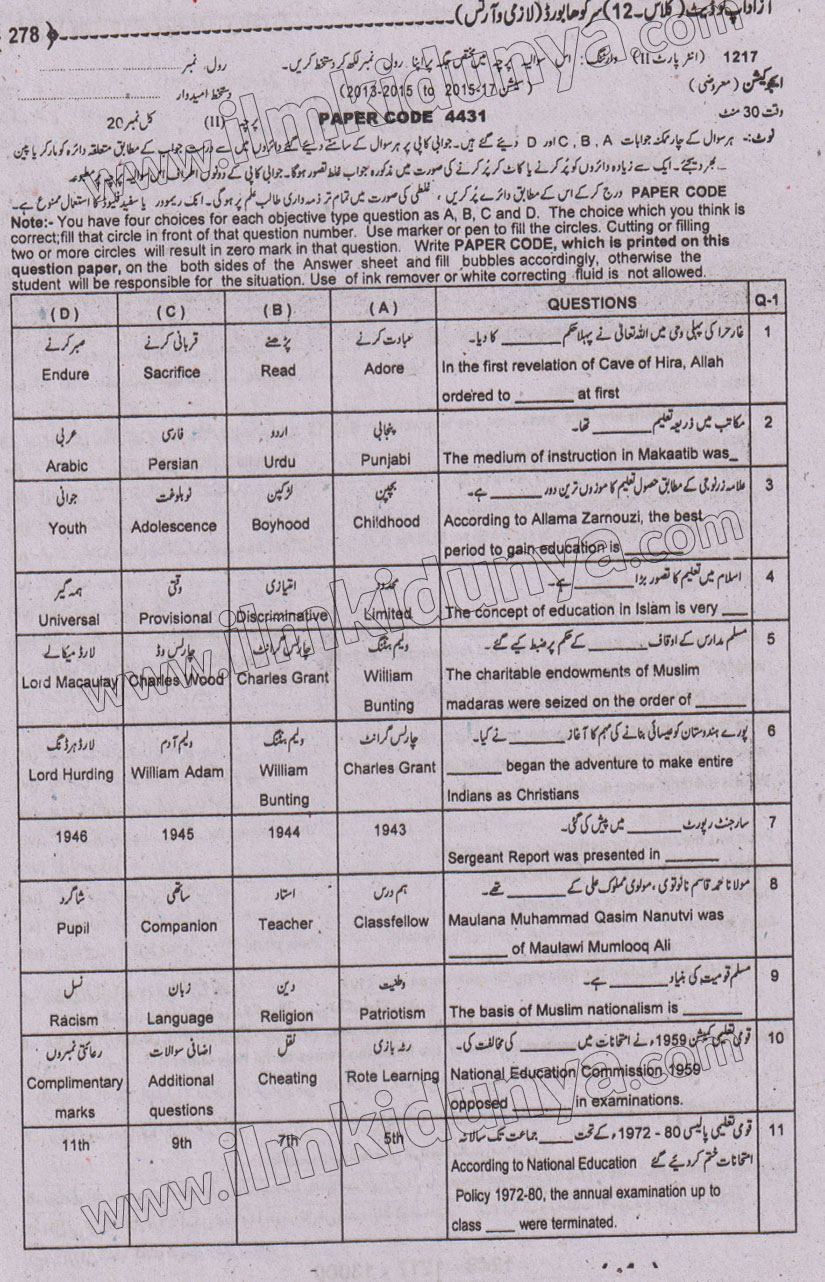 آزاداپ ٹو ڈیٹ (کلاس۔12) سرگودھا بورڈ (لازمی و آرٹس) 278
1217 (انٹر پارٹ II) وارننگ: اس سوالیہ پرچہ میں مختص جگہ پر اپنا رول نمبر لکھ کر دستخط کریں۔ رول نمبر
ایجوکیشن (معروضی) (سیشن 17-2015 to 2013-2015) دستخط امیدوار
وقت 30 منٹ PAPER CODE 4431 پرچہ (II) کل نمبر 20
نوٹ:- ہر سوال کے چار ممکنہ جوابات C , B , A اور D دیئے گئے ہیں۔ جوابی کاپی پر ہر سوال کے سامنے دیئے گئے دائروں میں سے درست جواب کے مطابق متعلقہ دائرہ کو مارکر یا پین
سے بھر دیجئے۔ ایک سے زیادہ دائروں کو پُر کرنے یا کاٹ کر پُر کرنے کی صورت میں مذکورہ جواب غلط تصور ہوگا۔ جوابی کاپی کے دونوں اطراف اس سوالیہ پرچہ پر مطبوعہ
PAPER CODE درج کر کے اس کے مطابق دائرے پُر کریں، غلطی کی صورت میں تمام تر ذمہ داری طالب علم پر ہوگی۔ انک ریمور یا سفید فلیوڈ کا استعمال ممنوع ہے۔
Note:- You have four choices for each objective type question as A, B, C and D. The choice which you think is
correct;fill that circle in front of that question number. Use marker or pen to fill the circles. Cutting or filling
two or more circles will result in zero mark in that question. Write PAPER CODE, which is printed on this
question paper, on the both sides of the Answer sheet and fill bubbles accordingly, otherwise the
student will be responsible for the situation. Use of ink remover or white correcting fluid is not allowed.
(D) (C) (B) (A) QUESTIONS Q-1
صبر کرنے قربانی کرنے پڑھنے عبادت کرنے غار حرا کی پہلی وحی میں اللہ تعالیٰ نے پہلا حکم ______ کا دیا۔ 1
Endure Sacrifice Read Adore In the first revelation of Cave of Hira, Allah
ordered to ______ at first
عربی فارسی اردو پنجابی مکاتب میں ذریعہ تعلیم ______ تھا۔ 2
Arabic Persian Urdu Punjabi The medium of instruction in Makaatib was_
جوانی نوبلوغت لڑکپن بچپن علامہ زرنوجی کے مطابق حصول تعلیم کا موزوں ترین دور ______ ہے۔ 3
Youth Adolescence Boyhood Childhood According to Allama Zarnouzi, the best
period to gain education is ______
ہمہ گیر وقتی امتیازی محدود اسلام میں تعلیم کا تصور بڑا ______ ہے۔ 4
Universal Provisional Discriminative Limited The concept of education in Islam is very ___
لارڈ میکالے چارلس وڈ چارلس گرانٹ ولیم بنٹنگ مسلم مدارس کے اوقاف ______ کے حکم پر ضبط کیے گئے۔ 5
Lord Macaulay Charles Wood Charles Grant William Bunting The charitable endowments of Muslim
madaras were seized on the order of ______
لارڈ ہرڈنگ ولیم آدم ولیم بنٹنگ چارلس گرانٹ پورے ہندوستان کو عیسائی بنانے کی مہم کا آغاز ______ نے کیا۔ 6
Lord Hurding William Adam William Bunting Charles Grant ______ began the adventure to make entire
Indians as Christians
1946 1945 1944 1943 سارجنٹ رپورٹ ______ میں پیش کی گئی۔ 7
Sergeant Report was presented in ______
شاگرد ساتھی استاد ہم درس مولانا محمد قاسم نانوتوی، مولوی مملوک علی کے ______ تھے۔ 8
Pupil Companion Teacher Classfellow Maulana Muhammad Qasim Nanutvi was
______ of Maulawi Mumlooq Ali
نسل زبان دین وطنیت مسلم قومیت کی بنیاد ______ ہے۔ 9
Racism Language Religion Patriotism The basis of Muslim nationalism is ______
رعائتی نمبروں اضافی سوالات نقل رٹہ بازی قومی تعلیمی کمیشن 1959ء نے امتحانات میں ______ کی مخالفت کی۔ 10
Complimentary marks Additional questions Cheating Rote Learning National Education Commission 1959
opposed ______ in examinations.
11th 9th 7th 5th قومی تعلیمی پالیسی 80 - 1972ء کے تحت ____ جماعت تک سالانہ 11
امتحانات ختم کر دیئے گئے According to National Education
Policy 1972-80, the annual examination up to
class ____ were terminated.
www.ilmkidunya.com
www.ilmkidunya.com
www.ilmkidunya.com